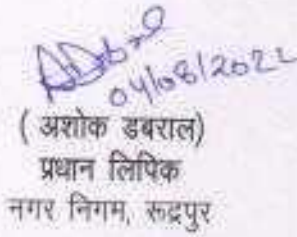 04/08/2022
( अशोक डबराल)
प्रधान लिपिक
नगर निगम, रूद्रपुर